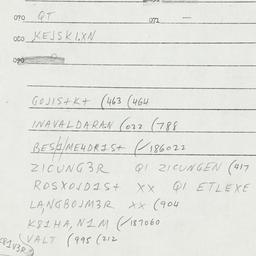 070 QT 072 —
080 KEJSKIXN
090
GOJIS+K+ (463 (464
INAVALDARAN (022 (788
BES/1/ME4DR1S+ (/186022
ZICUNG3R QI ZICUNGEN (417
ROSXOJD1S+ XX QI ETLEXE
LANGBOJM3R XX (904
K81HA,N1M (/187060
VALT (995 (212